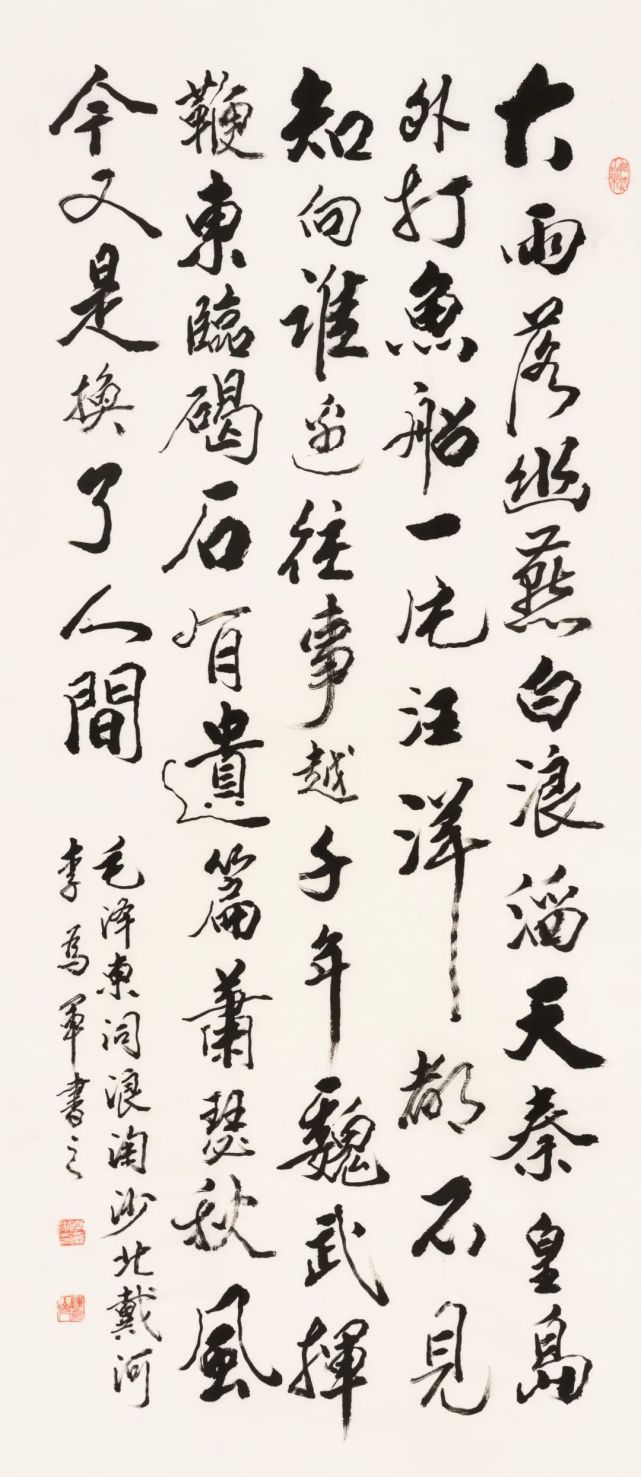 大雨落幽燕白浪滔天秦皇島
外打魚船一片汪洋都不見
知向誰邊往事越千年魏武揮
鞭東臨碣石有遺篇蕭瑟秋風
今又是換了人間
毛泽東词浪淘沙北戴河
李為軍書之